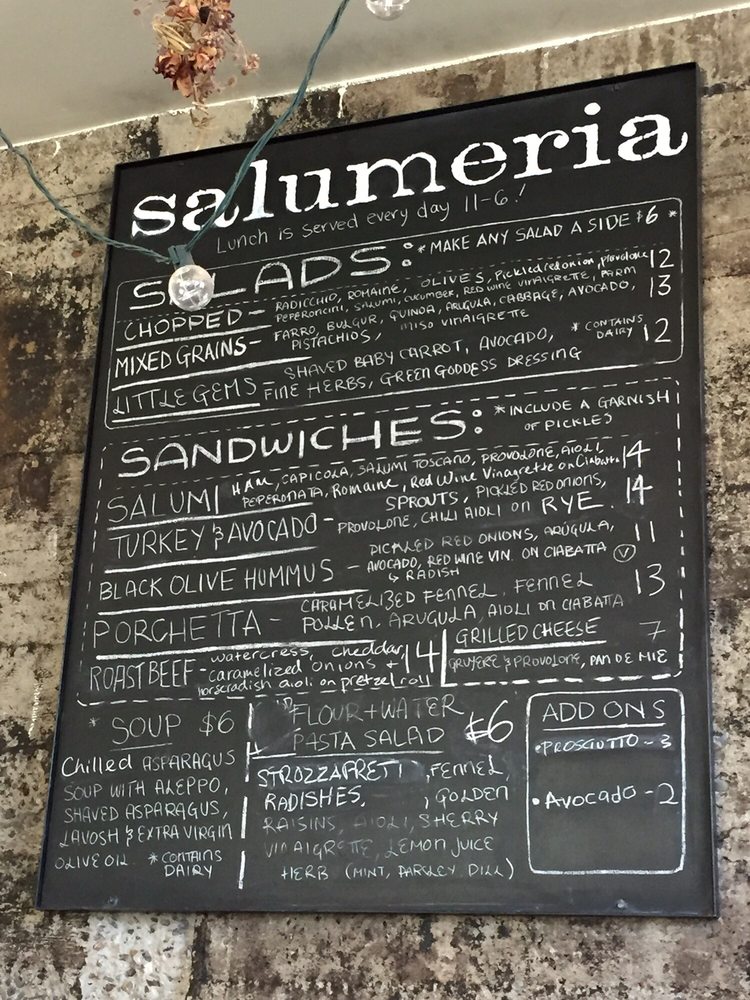 salumeria
Lunch is served every day 11-6!
SALADS: *MAKE ANY SALAD A SIDE $6 *
CHOPPED - RADICCHIO, ROMAINE, OLIVES, Pickled red onion, provolone 12
PEPERONCINI, SALUMI, CUCUMBER, RED WINE VINAIGRETTE, PARM
MIXED GRAINS - FARRO, BULGUR, QUINOA, ARUGULA, CABBAGE, AVOCADO, 13
PISTACHIOS, MISO VINAIGRETTE
LITTLE GEMS - SHAVED BABY CARROT, AVOCADO, *CONTAINS DAIRY 12
FINE HERBS, GREEN GODDESS DRESSING
SANDWICHES: *INCLUDE A GARNISH
OF PICKLES
SALUMI HAM, CAPICOLA, SALUMI TOSCANO, PROVOLONE, AIOLI, 14
PEPERONATA, Romaine, Red Wine Vinaigrette on Ciabatta
TURKEY & AVOCADO - SPROUTS, PICKLED RED ONIONS, 14
PROVOLONE, CHILI AIOLI ON RYE.
BLACK OLIVE HUMMUS - PICKLED RED ONIONS, ARUGULA, 11
AVOCADO, RED WINE VIN. ON CIABATTA V
↳ RADISH
PORCHETTA - CARAMELIZED FENNEL, FENNEL 13
POLLEN, ARUGULA, AIOLI ON CIABATTA
ROAST BEEF - watercress, cheddar, 14
caramelized onions +
horseradish aioli on pretzel roll
GRILLED CHEESE 7
GRUYERE & PROVOLONE, PAN DE MIE
* SOUP $6
Chilled ASPARAGUS
SOUP WITH ALEPPO,
SHAVED ASPARAGUS,
LAVOSH & EXTRA VIRGIN
OLIVE OIL. *CONTAINS
DAIRY
FLOUR + WATER
PASTA SALAD $6
STROZZAPRETI, FENNEL,
RADISHES, , GOLDEN
RAISINS, AIOLI, SHERRY
VINAIGRETTE, LEMON JUICE
HERB (MINT, PARSLEY DILL)
ADD ONS
•PROSCIUTTO - 3
•Avocado - 2